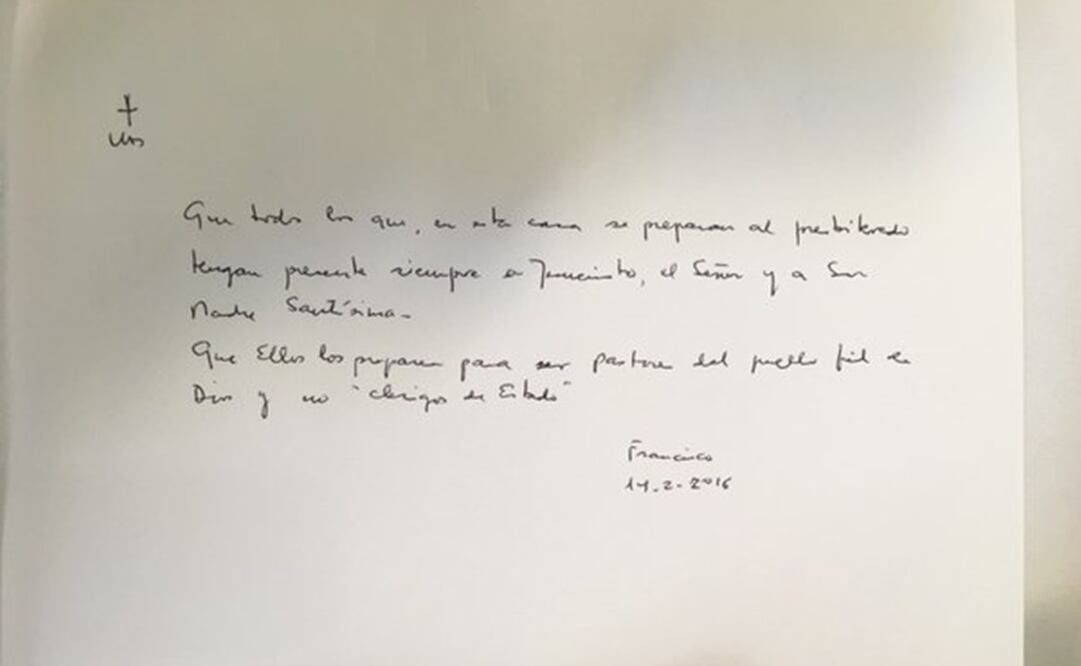 Que todos los que, en esta casa se preparan al presbiterado
tengan presente siempre a Jesucristo, el Señor y a Su
Madre Santísima -
Que Ellos los preparen para ser pastores del pueblo fiel de
Dios y no "clérigos de Estado"
Francisco
14.2.2016